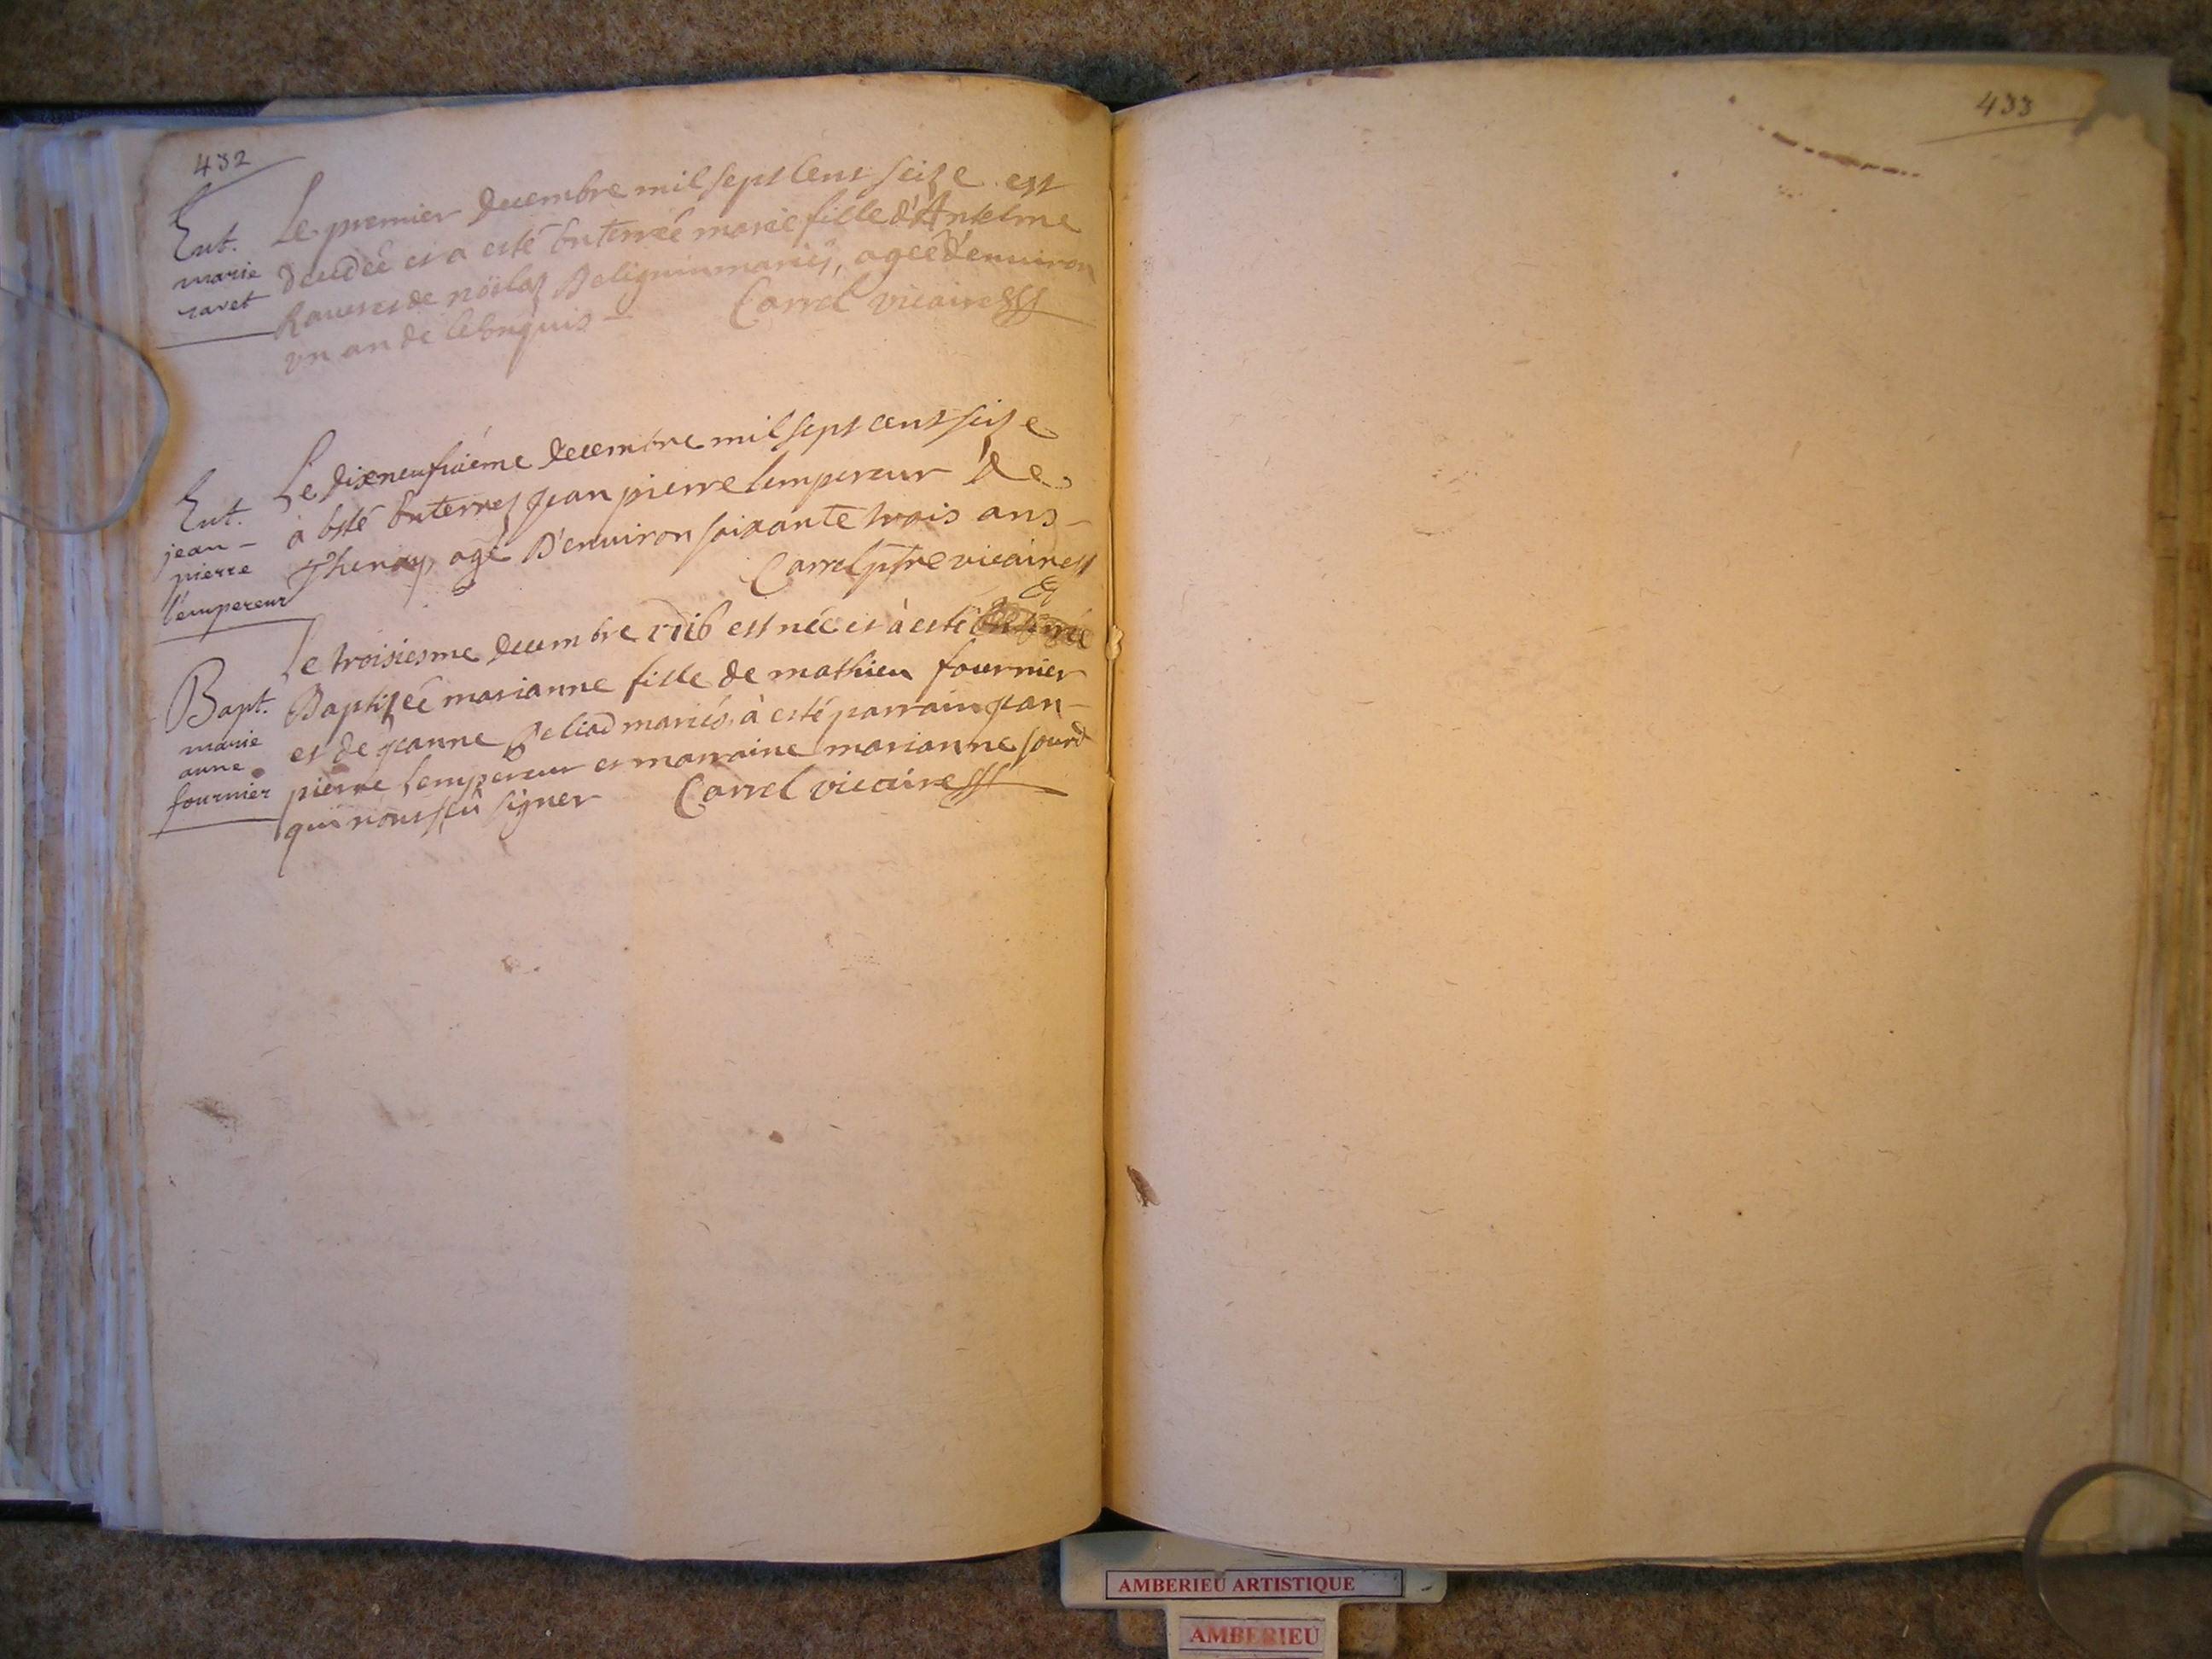 432
Ent.
marie
ravet
Le premier decembre mil sept cent seise est
decedeé et a esté enterreé marie fille d'Anselme
Ravet et de Deliguin mariés, ageé d'environ
un an de
Carrel vicaire
Ent.
jean -
pierre
l'empereur
Le dixneufvième decembre mil sept cent seise
à esté enterrez Jean pierre lempereur de
Thenay, agé d'environ soixante trois ans -
Carrel ptre vicaire
Bapt.
marie
anne
fournier
Le troisiesme decembre 1716 est néé et à esté
Baptizeé marianne fille de mathieu fournier
et de jeanne mariés, à esté parrain jean -
pierre lempereur et marraine marianne sourd
qui n'ont sçû signer
Carrel vicaire
433
AMBERIEU ARTISTIQUE
AMBERIEU